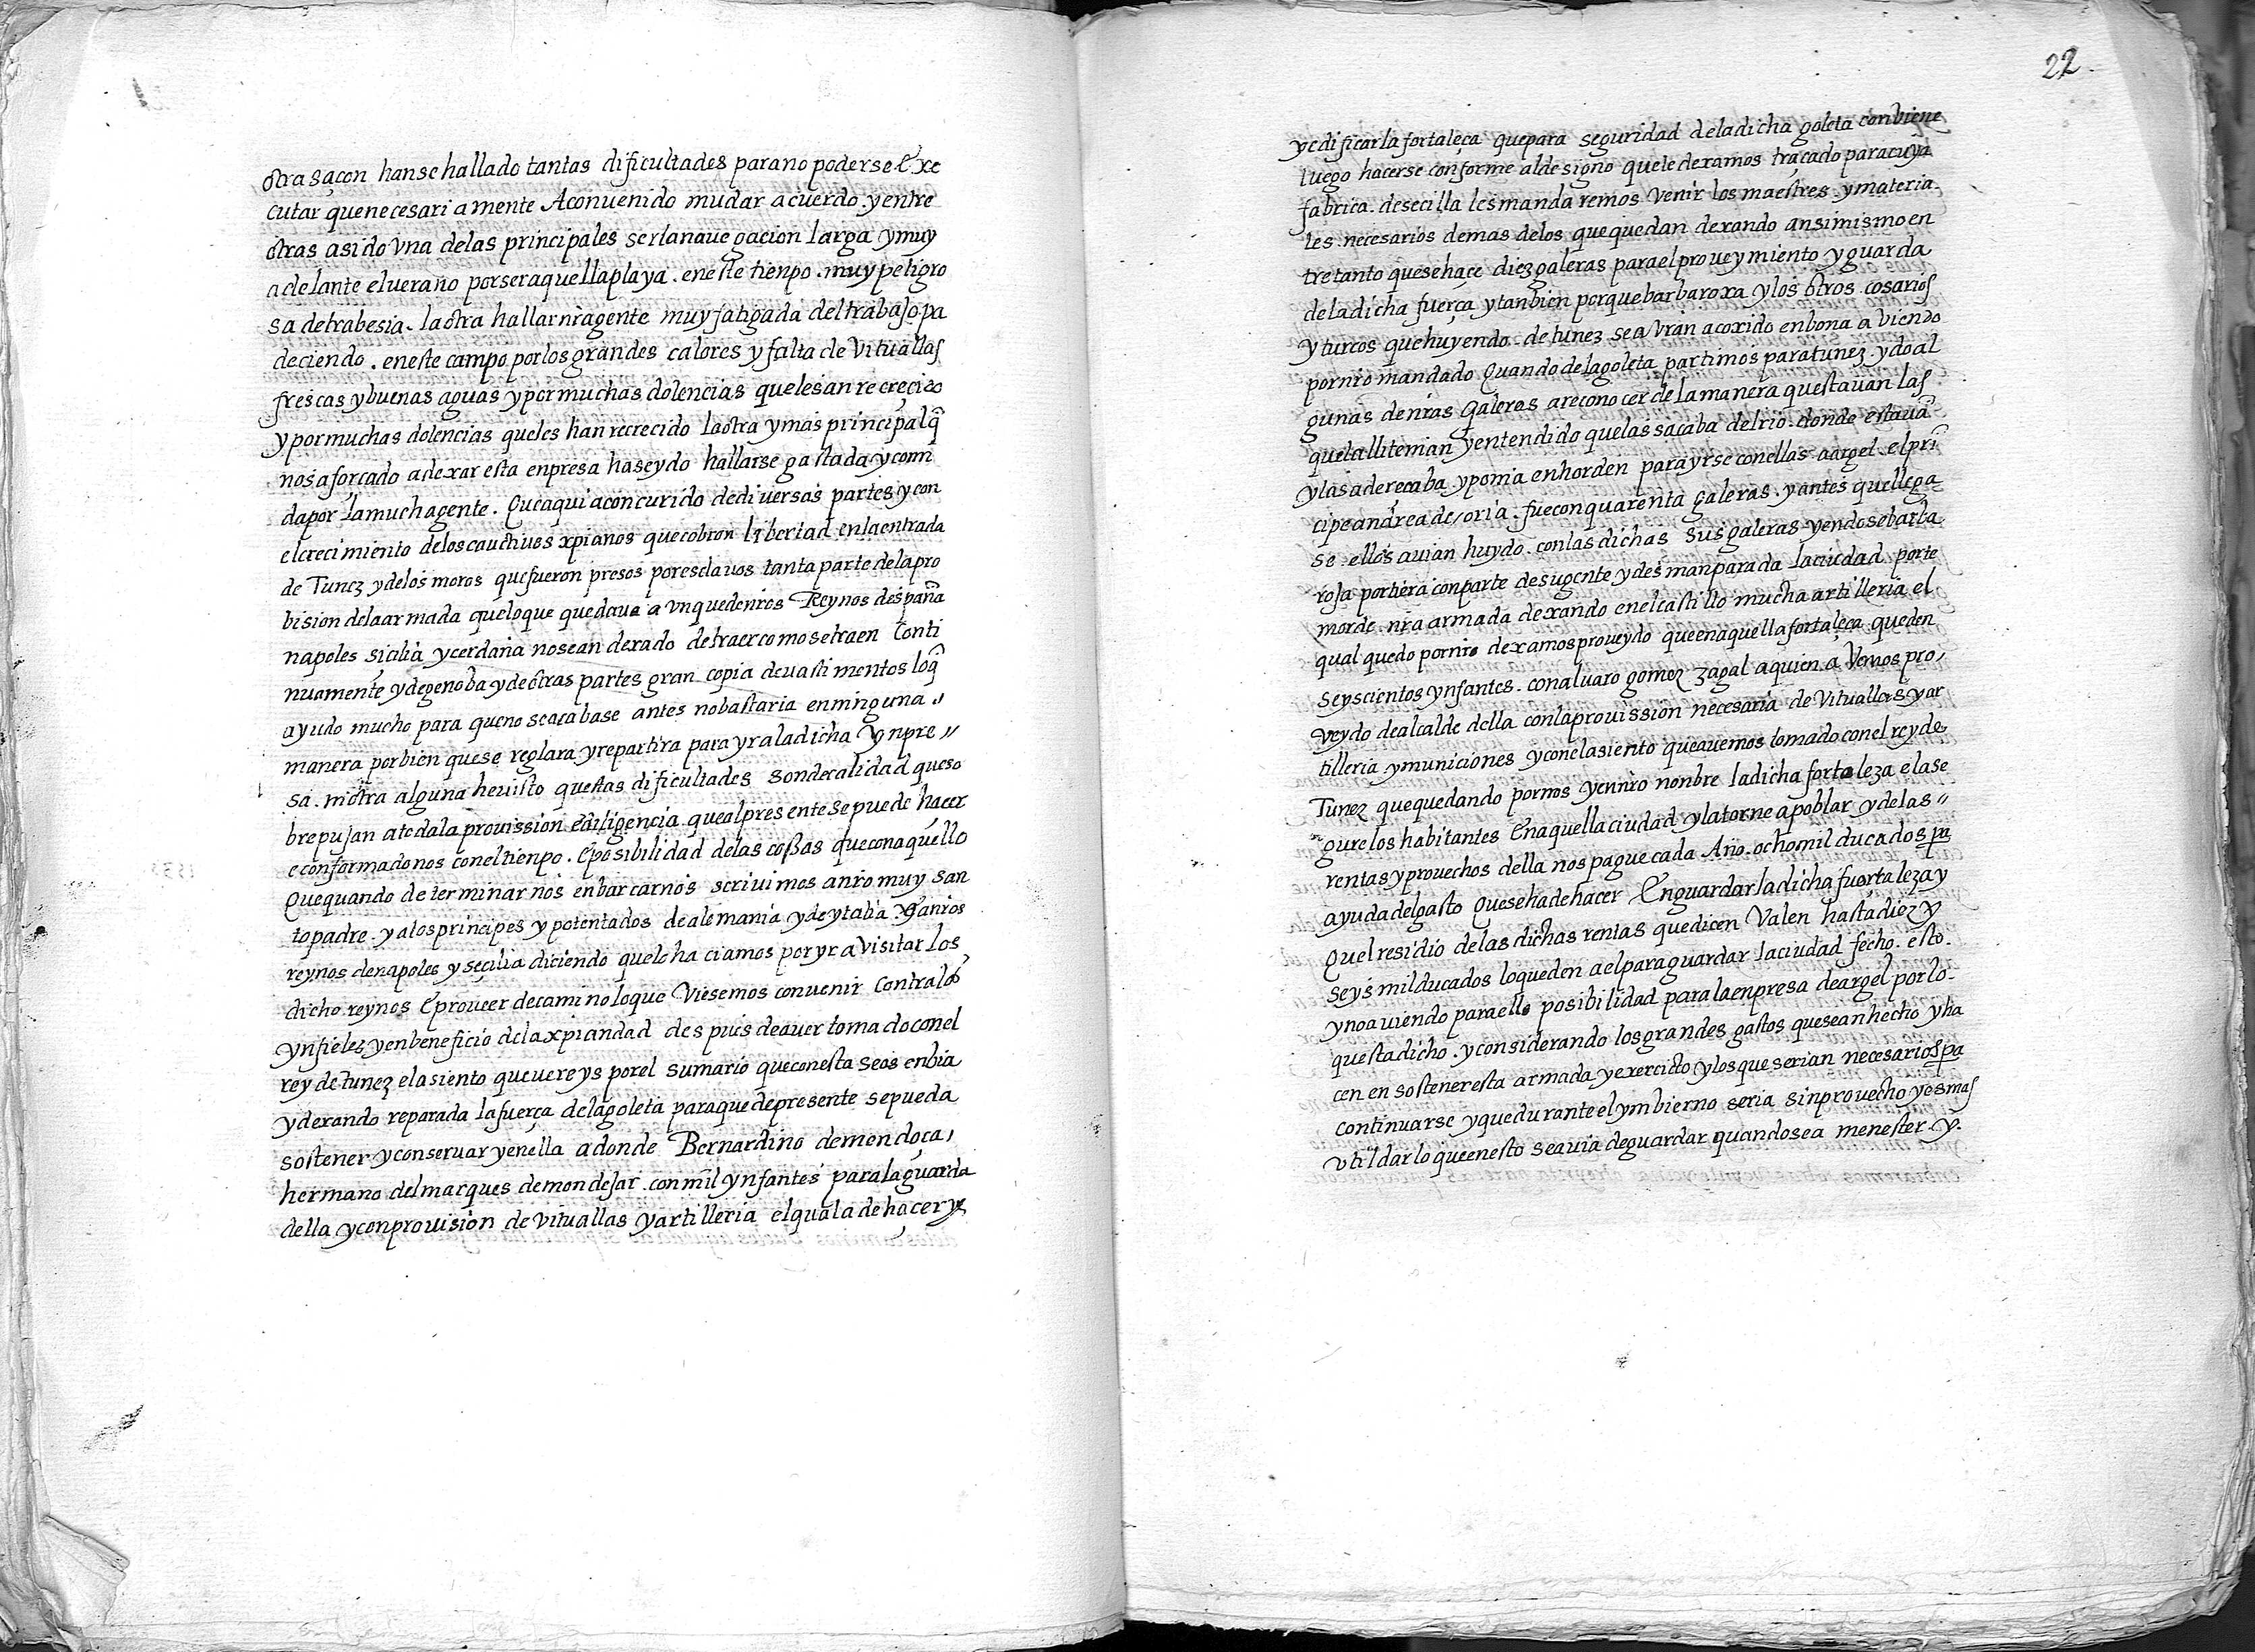 otra saçon hanse hallado tantas dificultades parano poderse Exe
cutar quenecesariamente Aconuenido mudar acuerdo. yentre
otras asido vna delas principales serlanauegacion larga ymuy
adelante elverano porseraquella playa. eneste tienpo. muy peligro
sa detrabesia. laotra hallar nra gente muy fatigada deltrabajo. pa
deciendo. eneste campo porlosgrandes calores y falta de Vituallas
frescas ybuenas aguas ypormuchas dolencias quelesan recrecido
ypormuchas dolencias queles han recrecido laotra ymas principalq̃
nosaforçado adexar esta enpresa haseydo hallarse gastada ycomi
dapor lamuchagente. Queaqui aconcurido dediversas partes ycon
elcrecimiento deloscautiuos xpianos quecobron libertad enlaentrada
de Tunez ydelos moros quefueron presos poresclauos tanta parte delapro
bision delaarmada queloque quedaua avnquedenros Reynos despaña
napoles sicilia ycerdaña nosean dexado detraercomosetraen Conti
nuamente ydegenoba ydeotras partes gran copia devastimentos loq̃
ayudo mucho para queno seacabase antes nobastaria enninguna "
manera porbien quese reglara yrepartira para yraladicha Ynpre "
sa. niotra alguna hevisto questas dificultades sondecalidad queso
brepujan atodala prouission ediligencia quealpresente sepuede hacer
econformadonos coneltienpo. Eposibilidad delas cossas queconaquello
Quequando determinarnos enbarcarnos scriuimos anro muy san
topadre. y alosprincipes y potentados dealemania ydeytalia Yanros
reynos denapoles y seçilia diciendo quelo haciamos poryr a Visitar los
dicho reynos Eproueer decamino loque Viesemos convenir Contralos
ynfieles yenbeneficio delaxpiandad despuis deauer tomadoconel
rey de tunez elasiento queuereys porel sumario queconesta seos enbia
ydexando reparada lafuerça delagoleta paraquedepresente sepueda
sostener yconseruar yenella adonde Bernardino demendoça,
hermano delmarques demondejar. conmil ynfantes paralaguarda
della yconprouision de vituallas yartilleria elquala dehacer y
22.
yedificarla fortaleça quepara seguridad deladicha goleta conbiene
luego hacerse conforme aldesigno quele dexamos traçado paracuya
fabrica. desecilla lesmandaremos Venir los maestres. ymateria
les. necesarios demas delos quequedan dexando ansimismoen
tretanto quesehaçe diezgaleras parael proueymiento yguarda
deladicha fuerça ytanbien porquebarbaroxa ylos otros. cosarios
yturcos quehuyendo. de tunez seavran acoxido enbona aviendo
pornro mandado Quando delagoleta partimos paratunez. ydoal
gunas denras Galeras areconocer delamanera questauan las
quelallitenian yentendido quelassacaba delrio. donde estauã
ylasadereçaba. yponia enhorden parayrse conellas. aargel. elpri
cipe andrea de/oria. fueconquarenta galeras. yantes quellega
se. ellos auian huydo. conlasdichas sus galeras yendosebarba
roja portiera conparte desugente ydesmanparada laciudad. porte
morde. nra armada dexando enelcastillo mucha artilleria el
qual quedo pornro dexamosproueydo queenaquella fortaleça queden
seyscientos ynfantes. conaluaro gomez zagal aquien a Vemos pro,
veydo dealcalde della conlaprouission necesaria de Vituallas yar
tilleria ymuniciones yconelasiento queauemos tomado conel reyde
Tunez quequedando pornos yennro nonbre ladicha fortaleza elase
gure los habitantes Enaquella ciudad ylatorne apoblar ydelas "
rentas yprouechos della nos pague cada Año. ochomil ducados pa
ayuda delgasto Quesehadehacer Enguardar ladicha fuortaleza y
Quel residio delas dichas rentas quedicen Valen hasta diez y
seys milducados loqueden aelparaguardar laciudad fecho. esto.
ynoauiendo paraello posibilidad para laenpresa deargel porlo
questadicho. yconsiderando losgrandes gastos quesean hecho yha
cen en sostener esta armada yexercicto ylosque serian necesarios pa
continuarse yquedurante elymbierno seria sinprouecho yesmas
vtil darlo queenesto seauia deguardar quandosea menester. y.